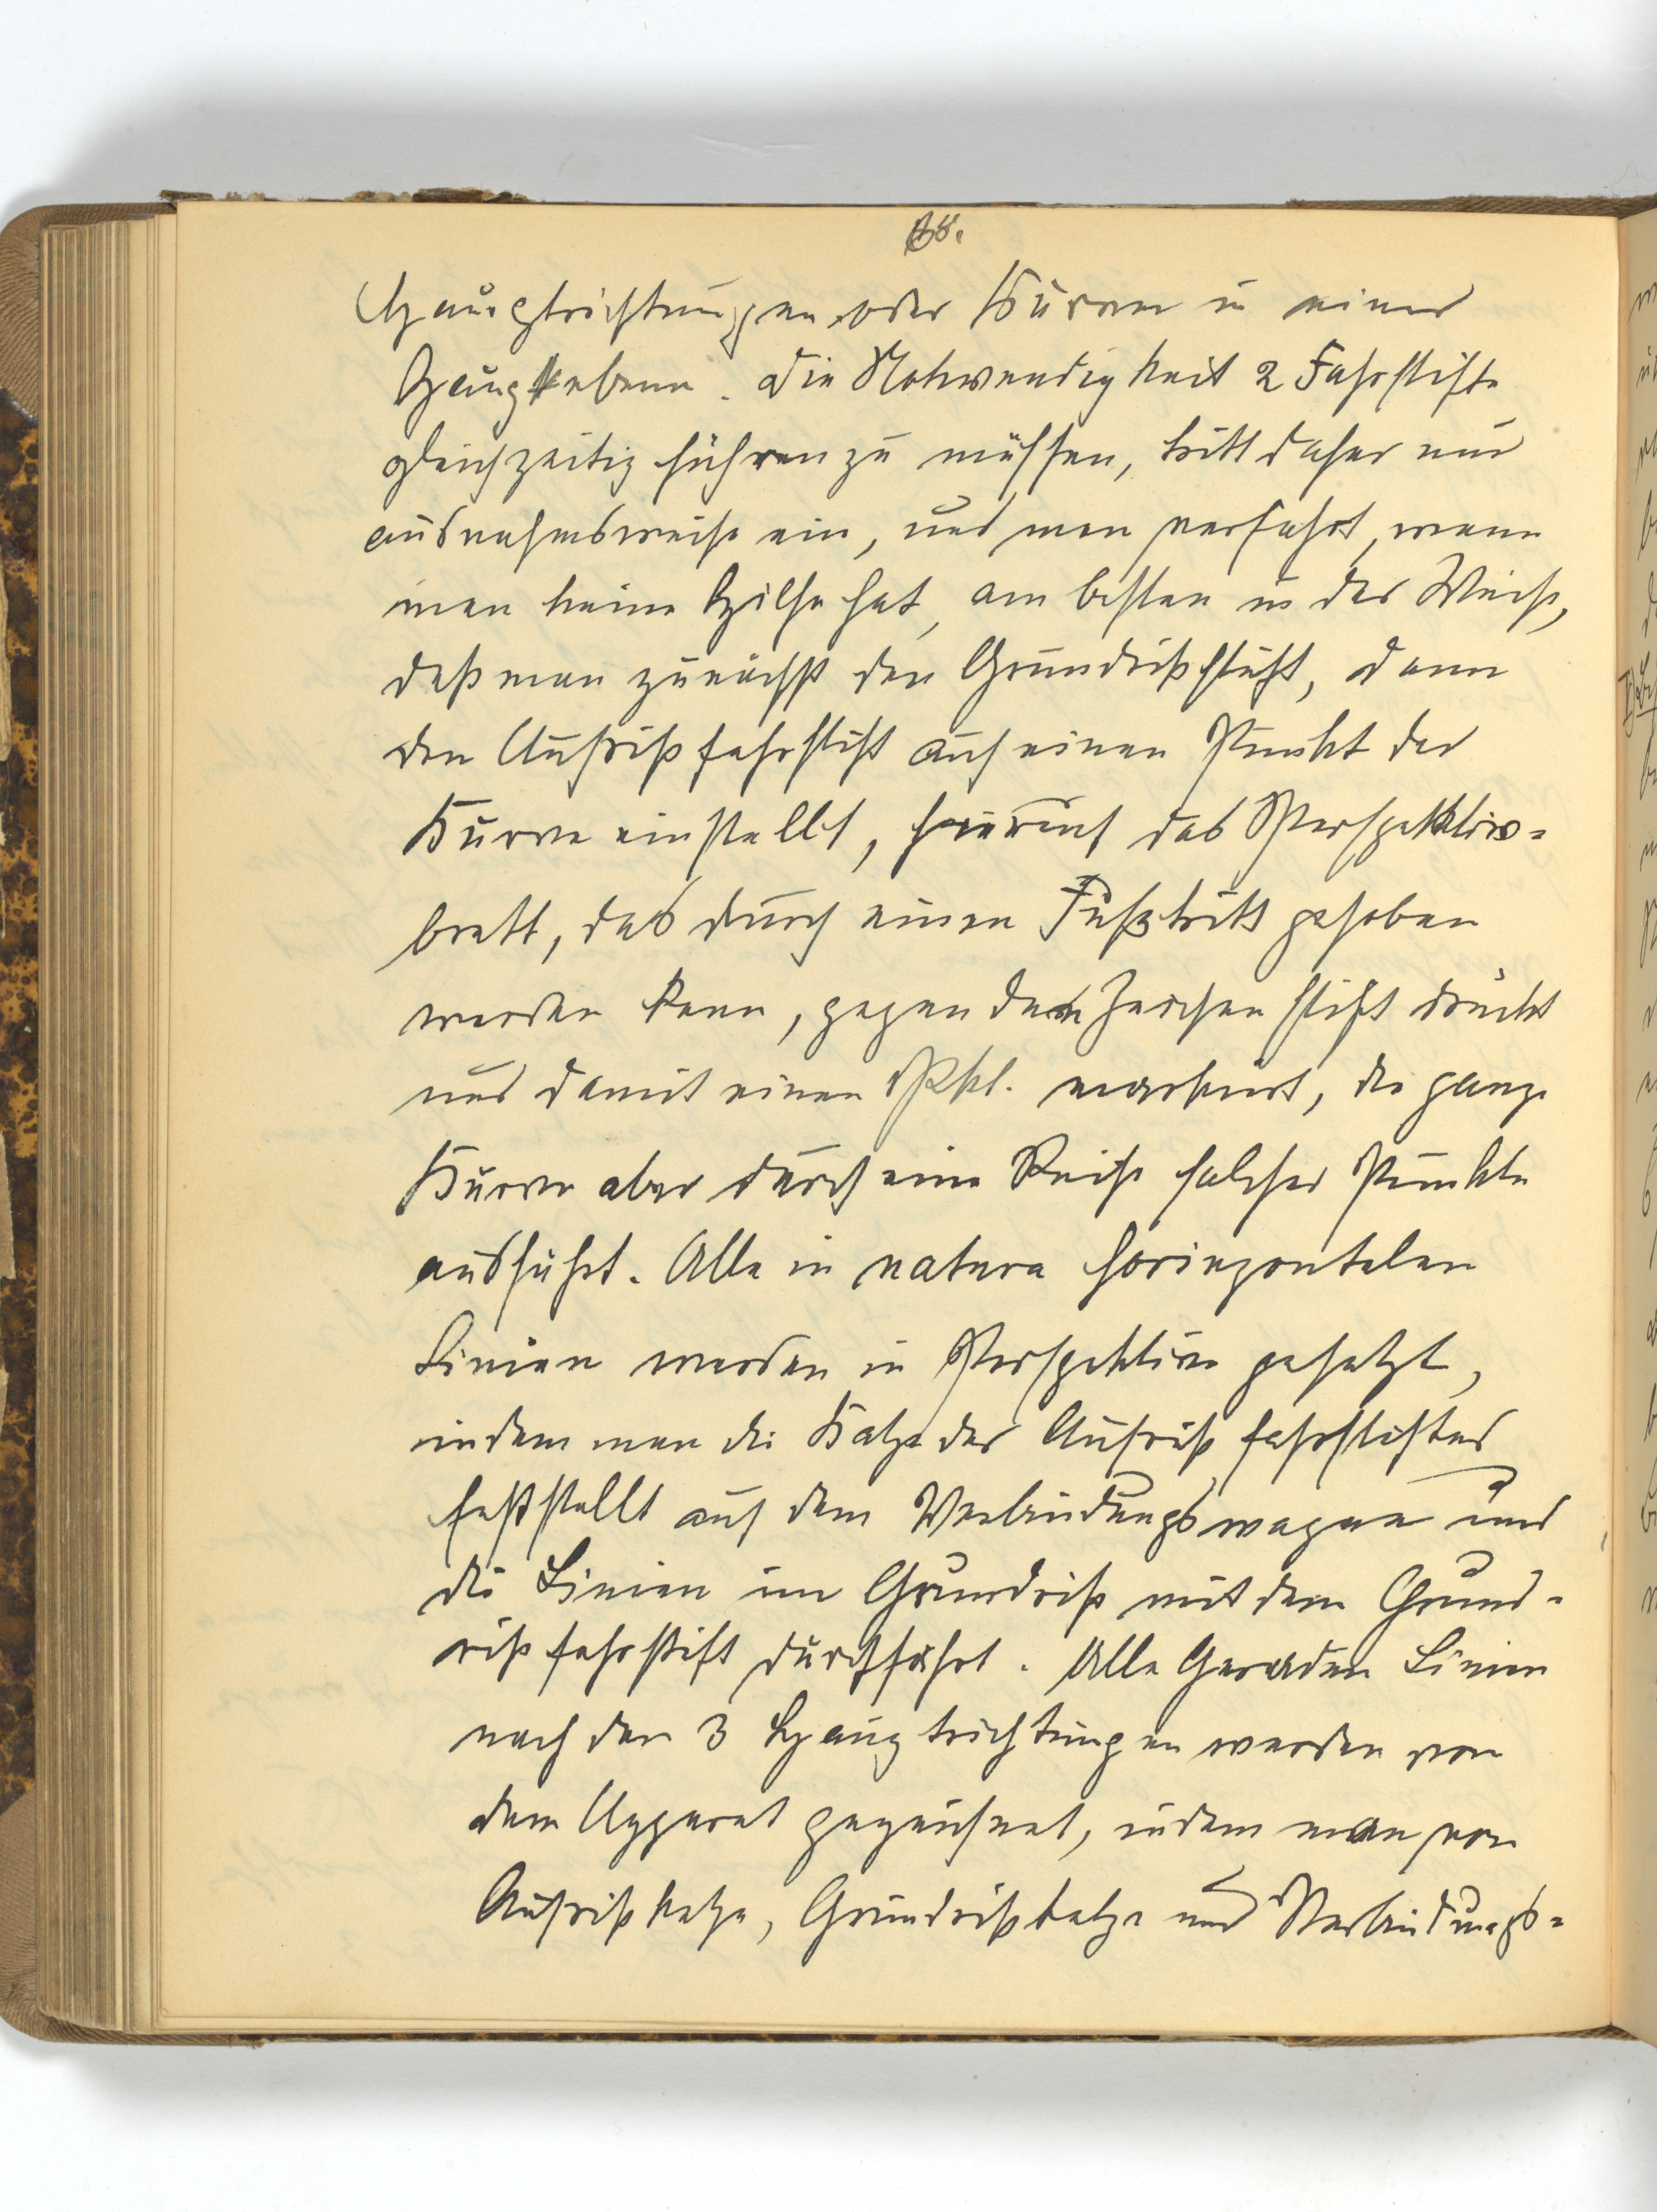 Hauptrichtungen oder Kurven in einer
Hauptebene. Die Notwendigkeit 2 Fahrstifte
gleichzeitig führen zu müssen, tritt daher nur
ausnahmsweise ein, und man verfährt, wenn
man keine Hilfe hat, am besten in der Weise,
daß man zunächst den Grundrißstift, dann
den Aufrißfahrstift auf einen Punkt der
Kurve einstellt, hierauf das Perspektiv-
brett, das durch einen Fußtritt gehoben
werden kann, gegen den Zeichenstift drückt
und damit einen Pkt. markiert, die ganze
Kurve aber durch eine Reihe solcher Punkte
ausführt. Alle in natura horizontalen
Linien werden in Perspektive gesetzt,
indem man die Katze des Aufrißfahrstiftes
feststellt auf dem Verbindungswagen und
die Linien im Grundriß mit dem Grund-
rißfahrstift durchfährt. Alle Geraden Linien
nach den 3 Hauptrichtungen werden von
dem Apparat gezeichnet, indem man von
Aufrißkatze, Grundrißkatze und Verbindungs-